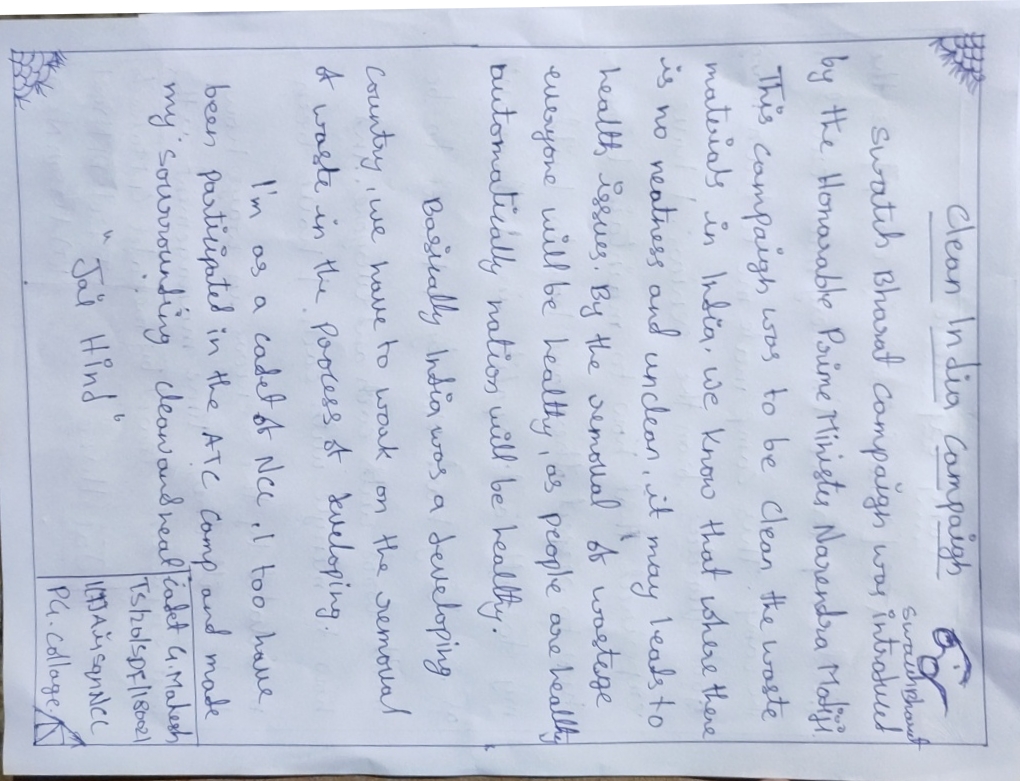 Clean India Campaigh
swachbharat
Swatch Bharat Campaigh was introduced
by the Honarable Prime Minister Narendra Modiji.
This campaigh was to be clean the waste
materials in India. we know that where there
is no neatness and unclean, it may leads to
health issues. By the removal of wastege
everyone will be healthy, as people are healthy
automatically nation will be healthy.
Basically India was a developing
country, we have to work on the removal
of waste in the process of developing.
I'm as a cadet of NCC, I too have
been participated in the ATC camp and made
my sourrounding clean and heal
" Jai Hind "
Cadet G. Mahesh
NCC
PG. Collage